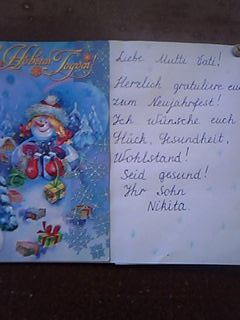 С Новым Годом!
Liebe Mutti Vati!
Herzlich gratuliere euch
zum Neujahrfest!
Ich wünsche euch
Glück, Gesundheit,
Wohlstand!
Seid gesund!
Ihr Sohn
Nikita.